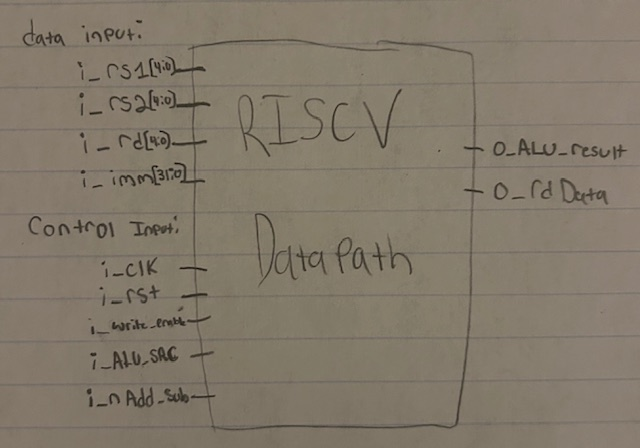 data input:
i_rs1[4:0]
i_rs2[4:0]
i_rd[4:0]
i_imm[31:0]
Control Input:
i_clk
i_rst
i_write_enable
i_ALU_SRC
i_nAdd_Sub
RISCV
Datapath
O_ALU_result
O_rdData